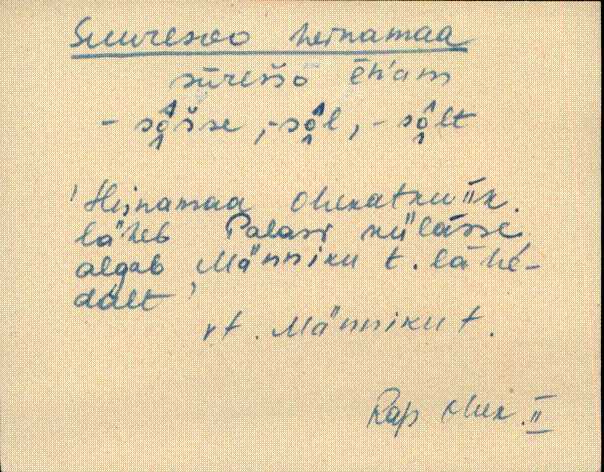 Suuresoo heinamaa
sūresso ēnam
- sô̬s̆se, -sô̬l, -sô̬lt
'Heinamaa Ohekatku ük.
läheb Palasi külasse
algab Männiku t. lähe-
dalt'
vt. Männiku t.
Rap Ohek. II